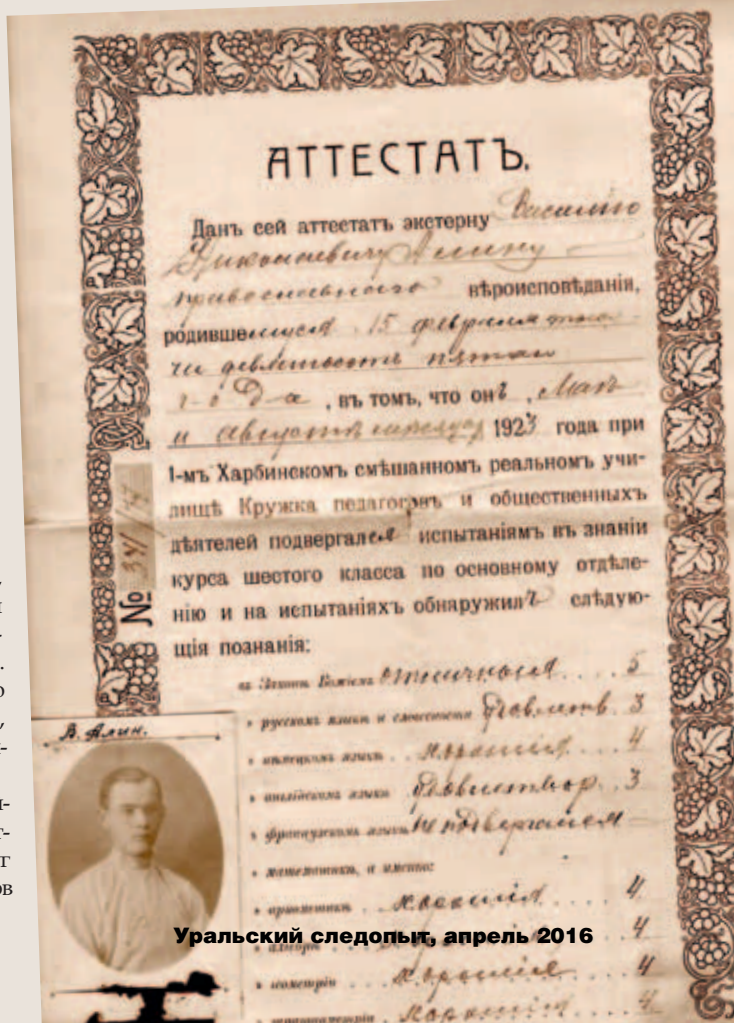 АТТЕСТАТЪ.
Данъ сей аттестатъ экстерну Василию
Николаевичу Алину
православнаго вѣроисповѣданія,
родившемуся 15 февраля тыся-
чи девятьсотъ пятаго
года, въ томъ, что онъ, въ Маѣ
и Августѣ 1923 года при
1-мъ Харбинскомъ смѣшанномъ реальномъ учи-
лищѣ Кружка педагоговъ и общественныхъ
дѣятелей подвергался испытаніямъ въ знаніи
курса шестого класса по основному отдѣле-
нію и на испытаніяхъ обнаружилъ слѣдую-
щія познанія:
№ 34/
въ Законѣ Божіемъ отличныя 5
» русскомъ языкѣ и словесности удовлетв. 3
» нѣмецкомъ языкѣ хорошія 4
» англійскомъ языкѣ удовлетвор. 3
» французскомъ языкѣ не подвергался —
» математикѣ, а именно:
» ариѳметикѣ хорошія 4
» алгебрѣ 4
» геометріи хорошія 4
» тригонометріи хорошія 4
В. Алин.
Уральский следопыт, апрель 2016